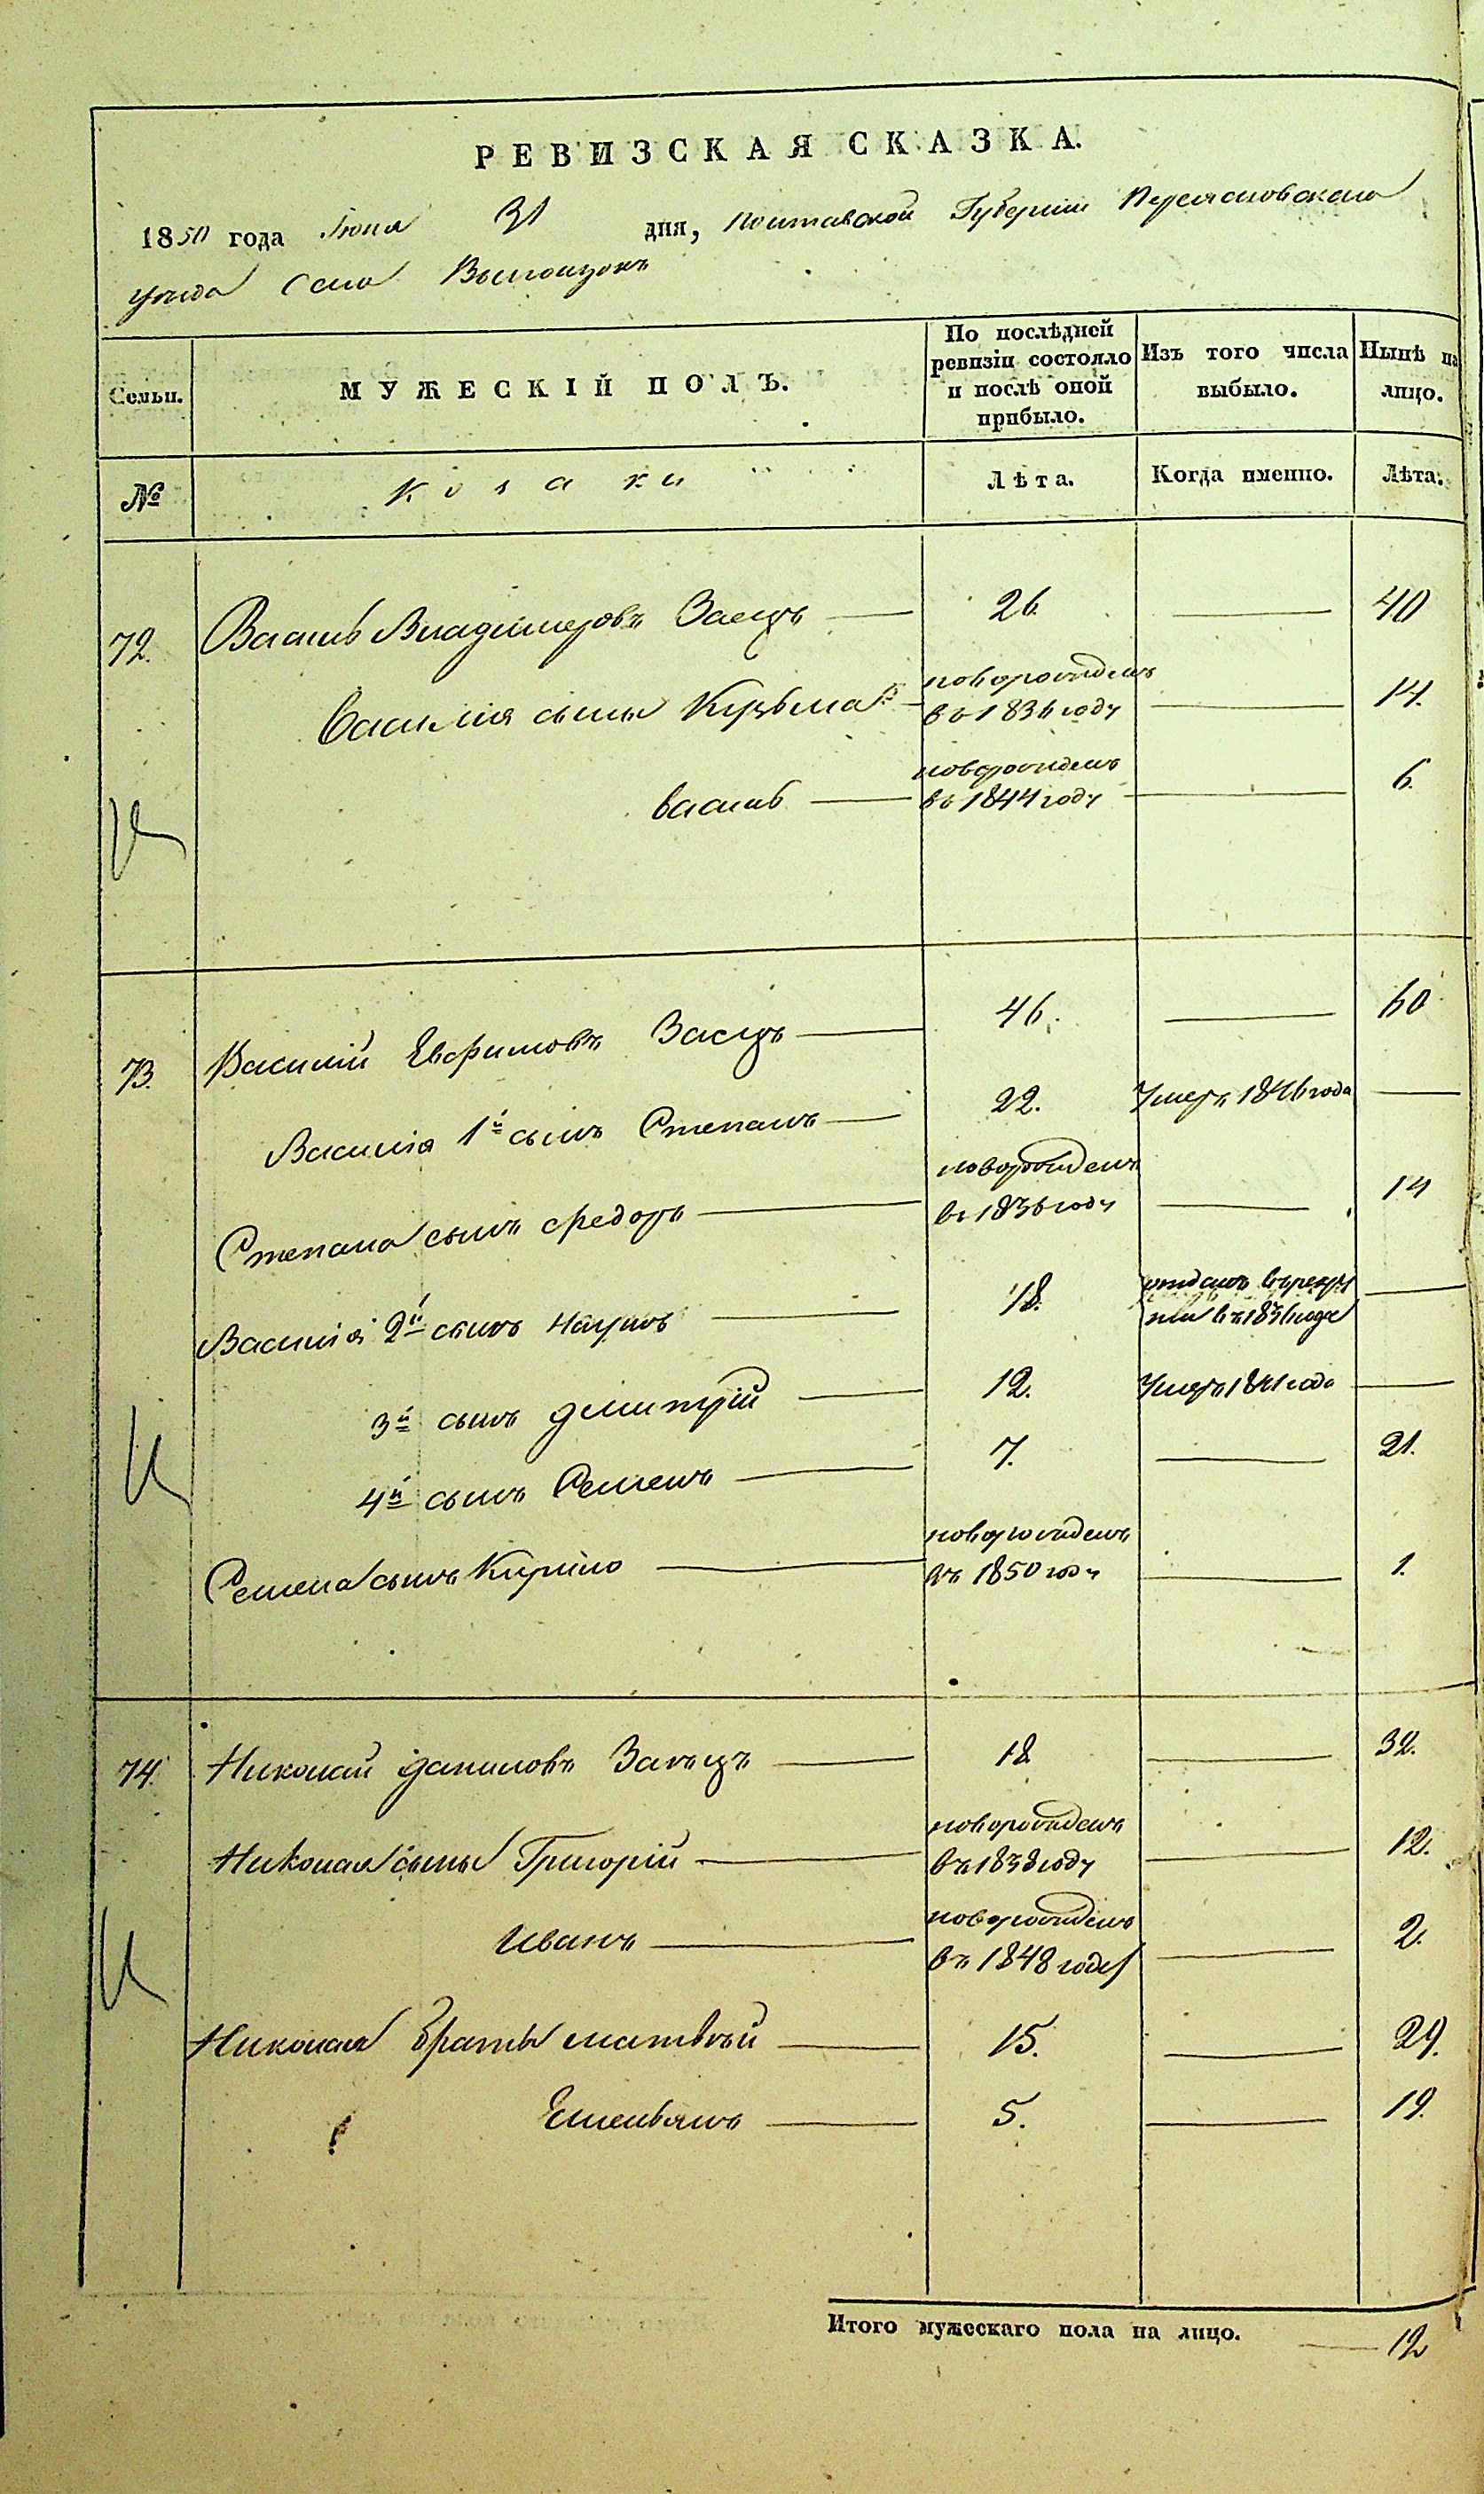 РЕВИЗСКАЯ СКАЗКА.
1850 года Июня 31 дня, Полтавской Губерніи Переясловского
уезда Села Выползокъ
Семьи. МУЖЕСКІЙ ПОЛЪ. По послѣдней ревизіи состояло и послѣ оной прибыло. Изъ того числа выбыло. Нынѣ на лицо.
№ Козаки Лѣта. Когда именно. Лѣта.
72. Василь Владимеровъ Заецъ 26. 40
Василия сыны Кузьма новорожденъ въ 1836 году 14.
василь новорожденъ въ 1844 году 6.
73. Василій Евфимовъ Заецъ 46. 60
Василія 1й сынъ Степанъ 22. Умеръ 1846 года
Степана сынъ Федоръ новорожденъ въ 1836 году 14
Василія 2й сынъ Наумъ 18. отданъ въ рекру
ты въ 1836 года
3й сынъ Дмитрій 12. Умеръ 1841 года
4й сынъ Семенъ 7. 21.
Семена сынъ Кирило новорожденъ въ 1850 году 1.
74. Николай Даниловъ Заецъ 18 32.
Николая сыны Григорій новорожденъ въ 1838 году 12.
Иванъ новорожденъ въ 1848 году 2.
Николая браты матвѣй 15. 29.
Емельянъ 5. 19.
Итого мужескаго пола на лицо. 12